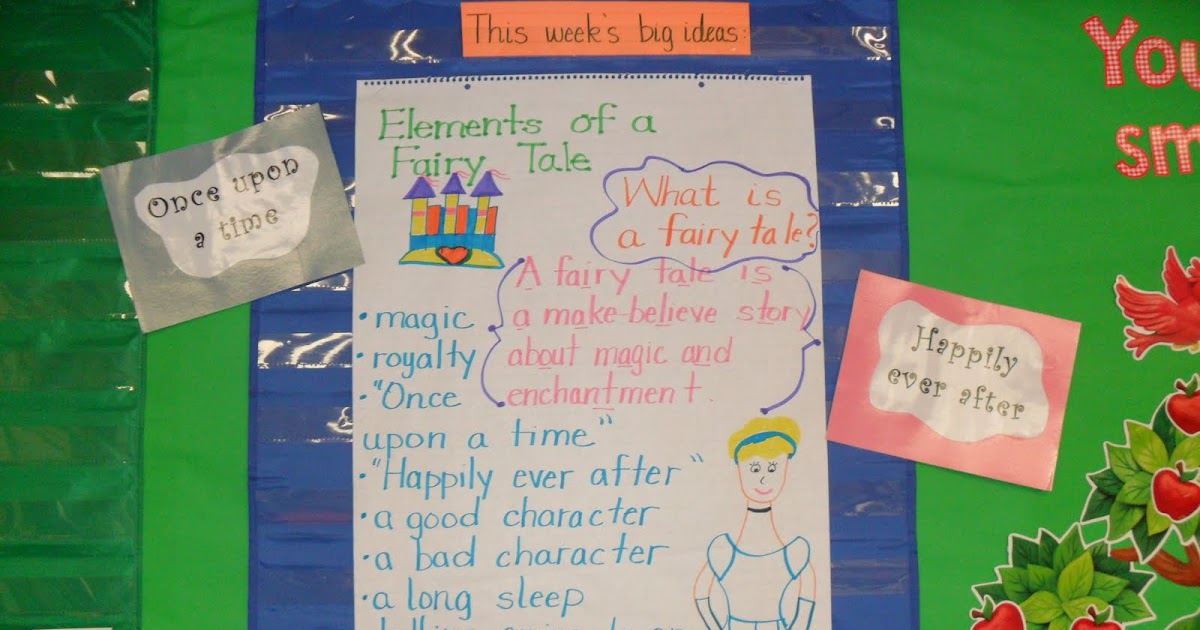 This week's big ideas:
Elements of a
Fairy Tale
Once upon
a time
What is
a fairy tale?
A fairy tale is
a make-believe story
about magic and
enchantment.
• magic
• royalty
• "Once
upon a time"
• "Happily ever after"
• a good character
• a bad character
• a long sleep
Happily
ever after
You
sm